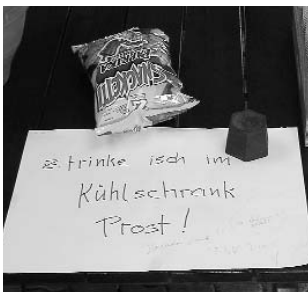 z. trinke isch im
Kühlschrank
Prost!